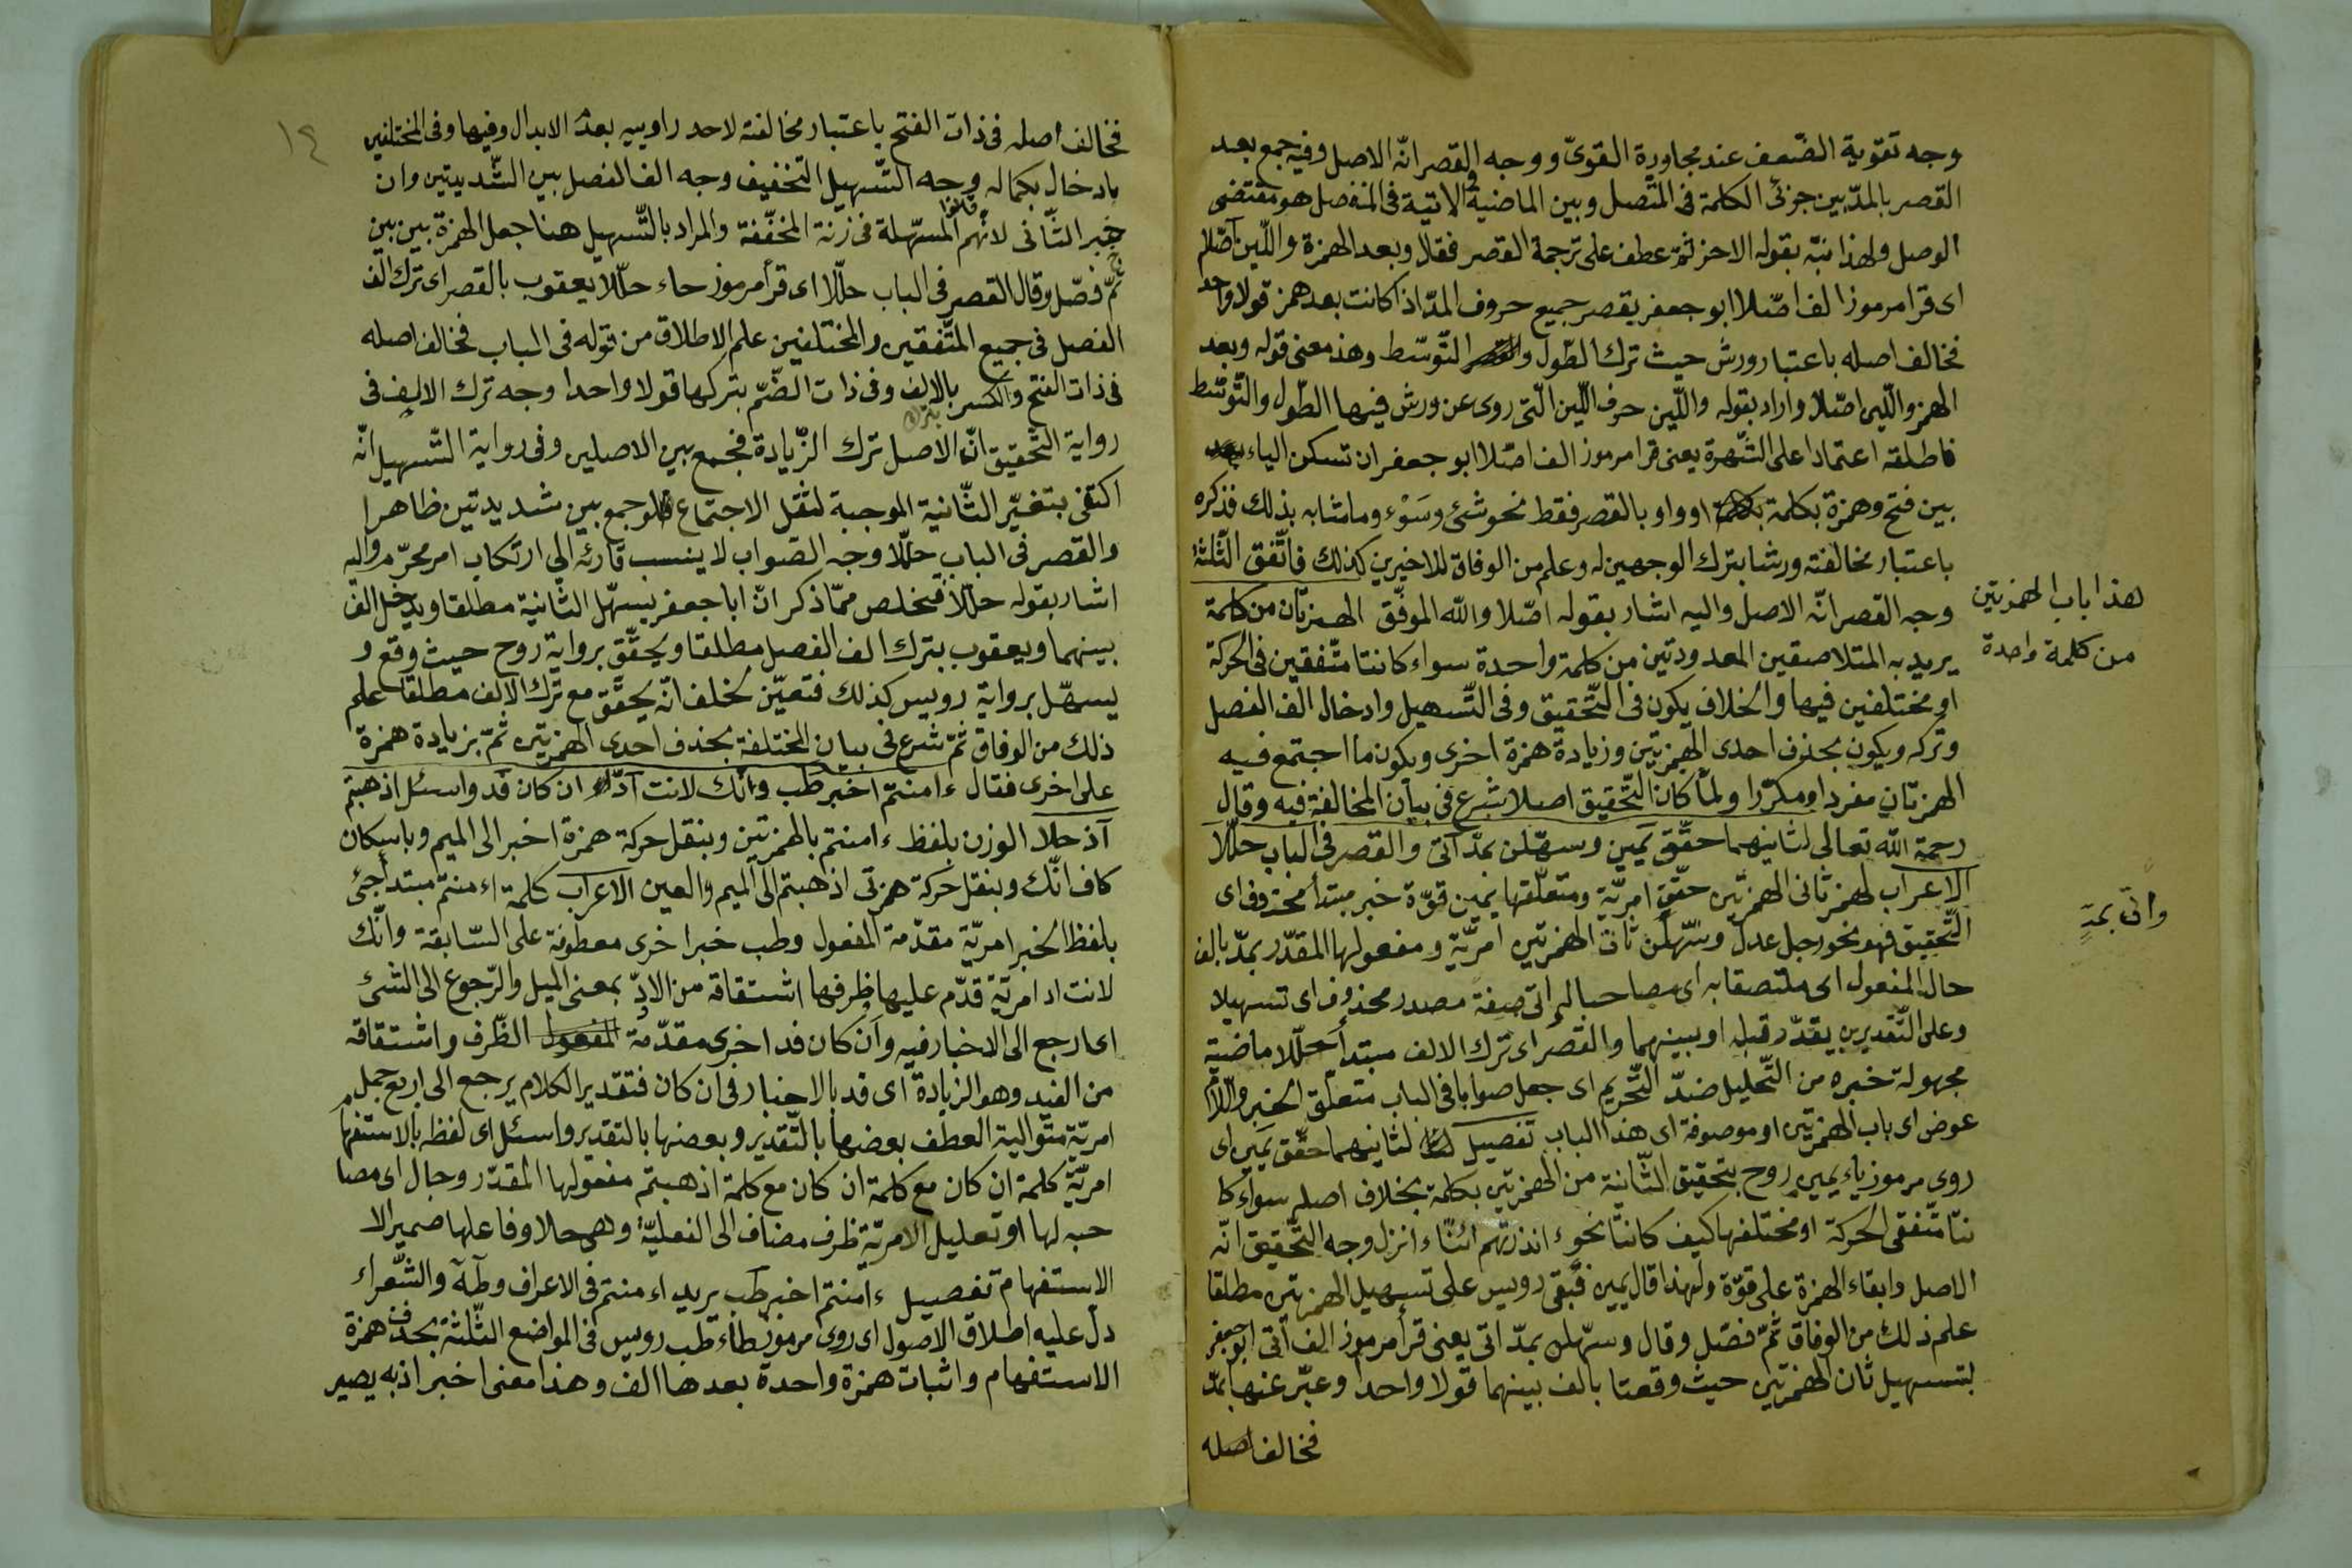 وجه تقوية الضعف عند مجاورة القوىّ ووجه القصر انّه الاصل وفيه جمع بعد
القصر بالمدّ بين جزئى الكلمة فى المتّصل وبين الماضية والاتية فى المنفصل هو مقتضى
الوصل ولهذا نبّه بقوله الاحز ثمّ عطف على ترجمة القصر فقال وبعد الهمزة واللّين اصّلا
اى قرا مرموز الف اصّلا ابو جعفر يقصر جميع حروف المدّ اذا كانت بعد همز قولا واحد
فخالف اصله باعتبار ورش حيث ترك الطّول والتّوسّط وهذ معنى قوله وبعد
الهمز واللّين اصّلا واراد بقوله واللّين حرف اللّين الّتى روى عن ورش فيها الطّول والتّوسّط
فاطلقه اعتمادا على الشّهرة يعنى قرا مرموز الف اصّلا ابو جعفر ان تسكن الياء
بين فتح وهمزة بكلمة او واو بالقصر فقط نحو شئ وسَوْء وما شابه بذلك فذكره
باعتبار مخالفته ورشا بترك الوجهين له وعلم من الوفاق للاخيرين كذلك فاتّفق الثّلثة
وجه القصر انّه الاصل واليه اشار بقوله اصّلا والله الموفّق الهمزتان من كلمة
يريد به المتلاصقين المعدودتين من كلمة واحدة سواء كانتا متّفقين فى الحركة
او مختلفين فيها والخلاف يكون فى التّحقيق وفى التّسهيل وادخال الف الفصل
وتركه ويكون بحذف احدى الهمزتين وزيادة همزة اخرى ويكون ما اجتمع فيه
الهمزتان مفردا ومكرّرا ولمّا كان التّحقيق اصلا شرع فى بيان المخالفة فيه وقال
رحمة الله تعالى لثانيهما حقّق يمين وسهّلن بمدّ اتى والقصر فى الباب حلّلا
الاعراب لهمز ثانى الهمزتين حقّق امريّة ومتعلّقها يمين قوّة خبر مبتدأ محذوف اى
التّحقيق فهو نحو رجل عدل وسّهلن ثان الهمزتين امريّة ومفعولها المقدّر بمدّ بالف
حال المفعول اى ملتصقا به اى مصاحبا له اتى صفة مصدر محذوف اى تسهيلا
وعلى التّقديرين يقدّر قبله او بينهما والقصر اى ترك الالف مبتدأ حلّلا ماضية
مجهولة خبره من التّحليل ضدّ التّحريم اى جعل صوابا فى الباب متعلّق الخبر واللّام
عوض اى باب الهمزتين او موصوفة اى هذا الباب تفصيل لثانيهما حقّق يمين اى
روى مرموز ياء يمين روح بتحقيق الثّانية من الهمزتين بكلمة بخلاف اصله سواء كا
نتا متّفقى الحركة او مختلفها كيف كانتا نحو ء انذرتهم ائنّا ء انزل وجه التّحقيق انّه
الاصل وابقاء الهمزة على قوّة ولهذا قال يمين فبقى رويس على تسهيل الهمزتين مطلقا
علم ذلك من الوفاق ثمّ فصّل وقال وسهّلن بمدّ اتى يعنى قرأ مرموز الف اتى ابو جعفر
بتسهيل ثان الهمزتين حيث وقعتا بالف بينهما قولا واحدا وعبّر عنها بمدّ
فخالف اصله
هذا باب الهمزتين
من كلمة واحدة
واتى بمدٍّ
١٤
فخالف اصله فى ذات الفتح باعتبار مخالفة لاحد راوييه بعد الابدال وفيها وفى المختلفين
بادخال بكماله وجه التّسهيل التخفيف وجه الف الفصل بين الشّديدتين وان
خبر الثّانى لانّهم قالوا المسهّلة فى زنة المخفّفة والمراد بالتّسهيل هنا جعل الهمزة بين بين
ثمّ فصّل وقال القصر فى الباب حلّلا اى قرأ مرموز حاء حلّلا يعقوب بالقصر اى ترك الف
الفصل فى جميع المتّفقين والمختلفين علم الاطلاق من قوله فى الباب فخالف اصله
فى ذات الفتح والكسر بالالف وفى ذات الضّمّ بتركها قولا واحدا وجه ترك الالف فى
رواية التّحقيق انّ الاصل ترك الزّيادة فجمع بين الاصلين وفى رواية التّسهيل انّه
بترك
اكتفى بتغيّر الثّانية الموجبة لثقل الاجتماع فلو جمع بين شديدتين ظاهرا
والقصر فى الباب حلّلا وجه الصّواب لا ينسب قارئه الى ارتكاب امر محرّم واليه
اشار بقوله حلّلا فتخلص ممّا ذكر انّ ابا جعفر يسهّل الثانية مطلقا ويدخل الف
بينهما ويعقوب بترك الف الفصل مطلقا ويحقّق برواية روح حيث وقع و
يسهّل برواية رويس كذلك فتعيّن لخلف انّه يحقّق مع ترك الالف مطلقا علم
ذلك من الوفاق ثمّ شرع فى بيان المختلفة بحذف احدى الهمزتين ثمّ بزيادة همزة
على اخرى فقال ءامنتم اخبر طب وانّك لانت ادّ ان كان فد واسئل اذهبتم
آذ حلا الوزن بلفظ ءامنتم بالهمزتين وبنقل حركة همزة اخبر الى الميم وباسكان
كاف انّك وبنقل حركة همزتى اذهبتم الى الميم والعين الاعراب كلمة اءمنتم مبتدأ جئ
بلفظ الخبر امريّة مقدّمة المفعول وطب خبرا خرى معطوفة على السّابقة وانّك
لانت اد امريّة قدّم عليها ظرفها اشتقاقه من الادّ بمعنى الميل والرّجوع الى الشئ
اى ارجع الى الاخبار فيه وان كان فد اخرى مقدّمة الظّرف واشتقاقه
من الفيد وهو الزيادة اى قد بالاخبار فى ان كان فتقدير الكلام يرجع الى اربع جمل
امريّة متوالية العطف بعضها بالتّقدير وبعضها بالتقدير واسئل اى لفظه بالاستفها
امريّة كلمة ان كان مع كلمة ان كان مع كلمة اذهبتم مفعولها المقدّر وحال اى مصا
حبه لها او تعليل الامريّة ظرف مضاف الى الفعليّة وهى حلا وفاعلها ضمير الا
الاستفهام تفصيل ءامنتم اخبر طب يريد اءمنتم فى الاعراف وطه والشّعراء
دلّ عليه اطلاق الاصول اى روى مرموز طاء طب رويس فى المواضع الثّلثة بحذف همزة
الاستفهام واثبات همزة واحدة بعدها الف وهذا معنى اخبر اذ به يصير